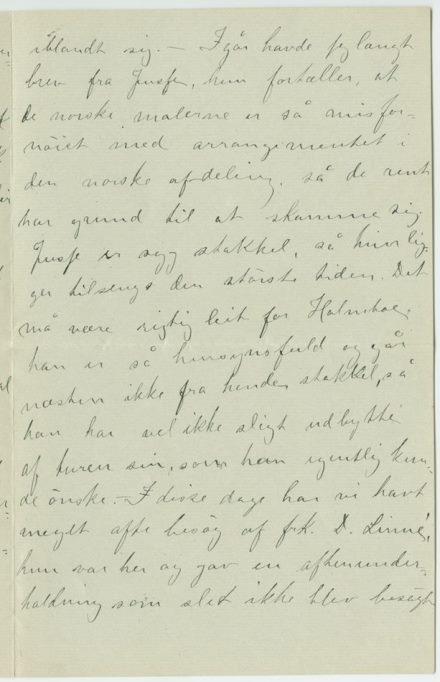 iblandt sig. – Igår havde jeg langt
brev fra Jusse, hun fortæller, at
de norske malerne er så misfor-
nöiet med arrangementet i
den norske afdeling, så de rent
har grund til at skamme sig.
Jusse er syg stakkel, så hun lig-
ger tilsengs den störste tiden. Det
må være rigtig leit for Holmboe,
han er så hensynsfuld og går
næsten ikke fra hende, stakkel, så
han har vel ikke sligt udbytte
af turen sin, som han egentlig kun-
de önske. – I disse dage har vi havt
meget ofte besög af frk. D.
hun var her og gav en aftenunder-
holdning som slet ikke blev besögt